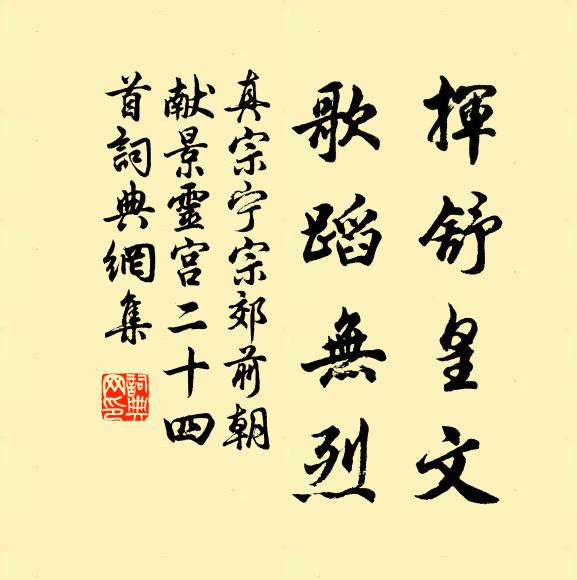 揮舒皇文
歌蹈無烈
真宗宁宗郊前朝
献景靈宮二十四
首詞典網集
詞典
网印